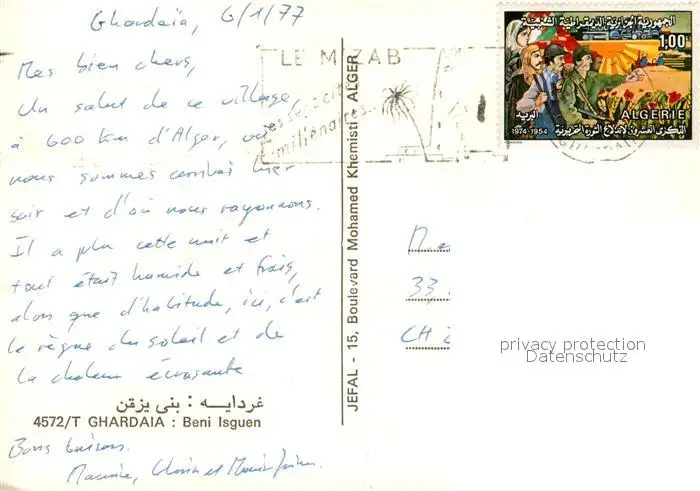 Ghardaïa, 6/1/77
Mes bien chers,
Un salut de ce village,
à 600 km d'Alger, où
nous sommes arrivés hier
soir et d'où nous rayonnons.
Il a plu cette nuit et
tout était humide et frais,
alors que d'habitude, ici, c'est
le règne du soleil et de
la chaleur écrasante
غردايه : بنى يزقن
4572/T GHARDAIA : Beni Isguen
Bons baisers.
Maurice,
LE M'ZAB
ses cités
millénaires
JEFAL - 15, Boulevard Mohamed Khemisti - ALGER
الجمهورية الجزائرية الديمقراطية الشعبية
1,00
ALGERIE
البريد
1974-1954
الذكرى العشرون لاندلاع الثورة التحريرية
33,
CH
privacy protection
Datenschutz